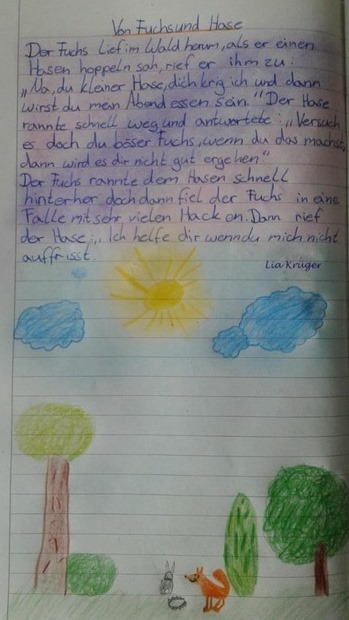 Von Fuchs und Hase
Der Fuchs Lief im Wald herum, als er einen
Hasen hoppeln sah, rief er ihm zu:
„Na, du kleiner Hase, dich krig ich und dann
wirst du mein Abendessen sein." Der Hase
rannte schnell weg und antwortete: „Versuch
es doch du böser Fuchs, wenn du das machst,
dann wird es dir nicht gut ergehen."
Der Fuchs rannte dem Hasen schnell
hinterher doch dann fiel der Fuchs in eine
Falle mit sehr vielen Hacken. Dann rief
der Hase: „Ich helfe dir wenn du mich nicht
auffrisst.
Lia Krüger